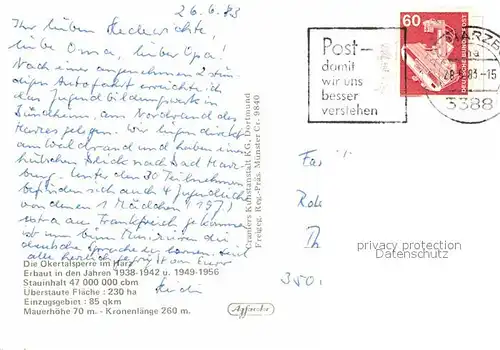 26.6.83
Ihr lieben
liebe Oma, lieber Opa!
Nach einer angenehmen 2 stün-
digen Autofahrt erreichte ich
das Jugendbildungswerk in
am Nordrand des
Harzes gelegen. Wir liegen direkt
am Waldrand und haben einen
hübschen Blick nach Bad Harz-
burg. Unter den 30 Teilnehmern
befinden sich auch 4 Jugendliche
von denen 1 Mädchen (19)
aus Frankreich gekommen
ist um beim
deutsche Sprache zu lernen. Seid
alle herzlich gegrüßt von Eurer
Heidi
Die Okertalsperre im Harz
Erbaut in den Jahren 1938-1942 u. 1949-1956
Stauinhalt 47 000 000 cbm
Überstaute Fläche : 230 ha
Einzugsgebiet : 85 qkm
Mauerhöhe 70 m. - Kronenlänge 260 m.
Cramers Kunstanstalt KG, Dortmund
Freigeg. Reg.-Präs. Münster Cr. 9840
Post-
damit
wir uns
besser
verstehen
60
DEUTSCHE BUNDESPOST
-15
3388
Fa
Rob
Th
350
privacy protection
Datenschutz